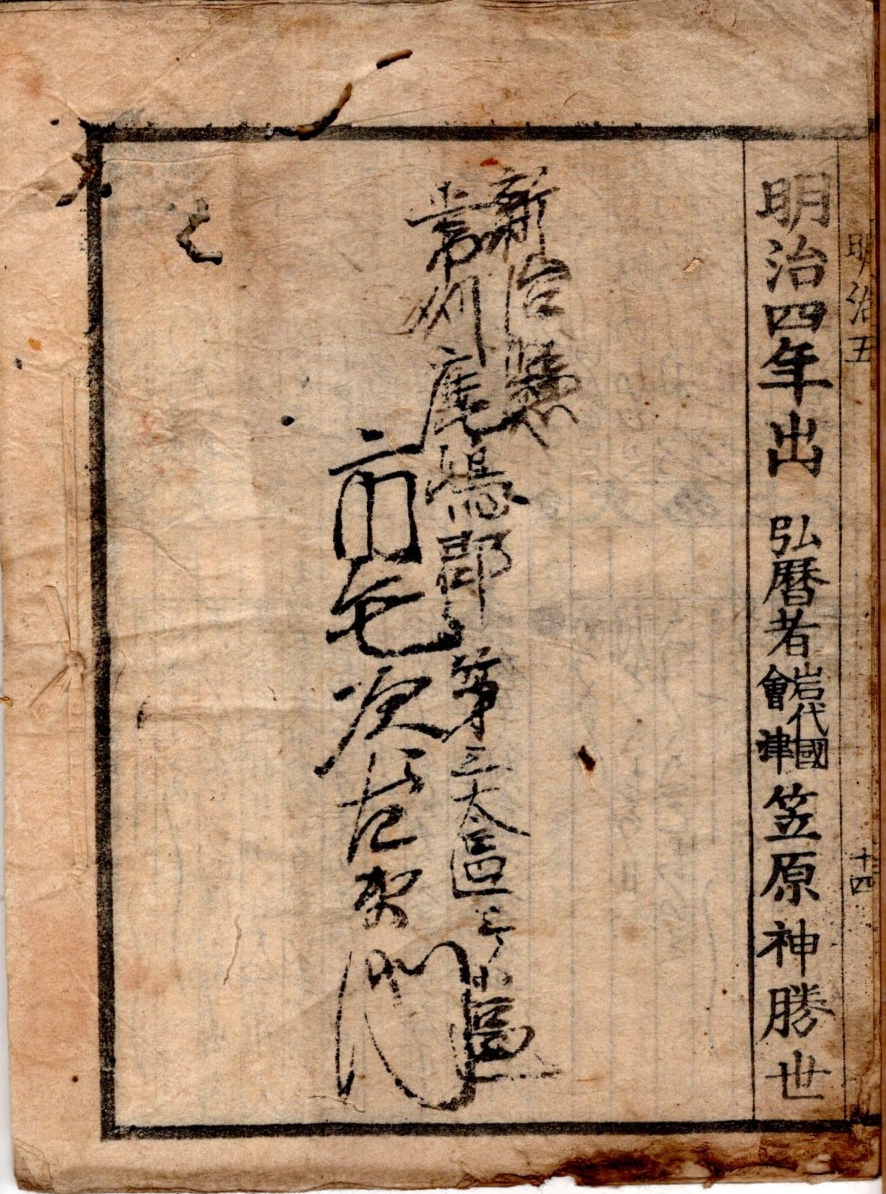 明治五
十四
明治四年出 弘暦者 岩代國 會津 笠原神勝世
新治縣
常州鹿嶋郡第三大區
小區
市毛次左衛門